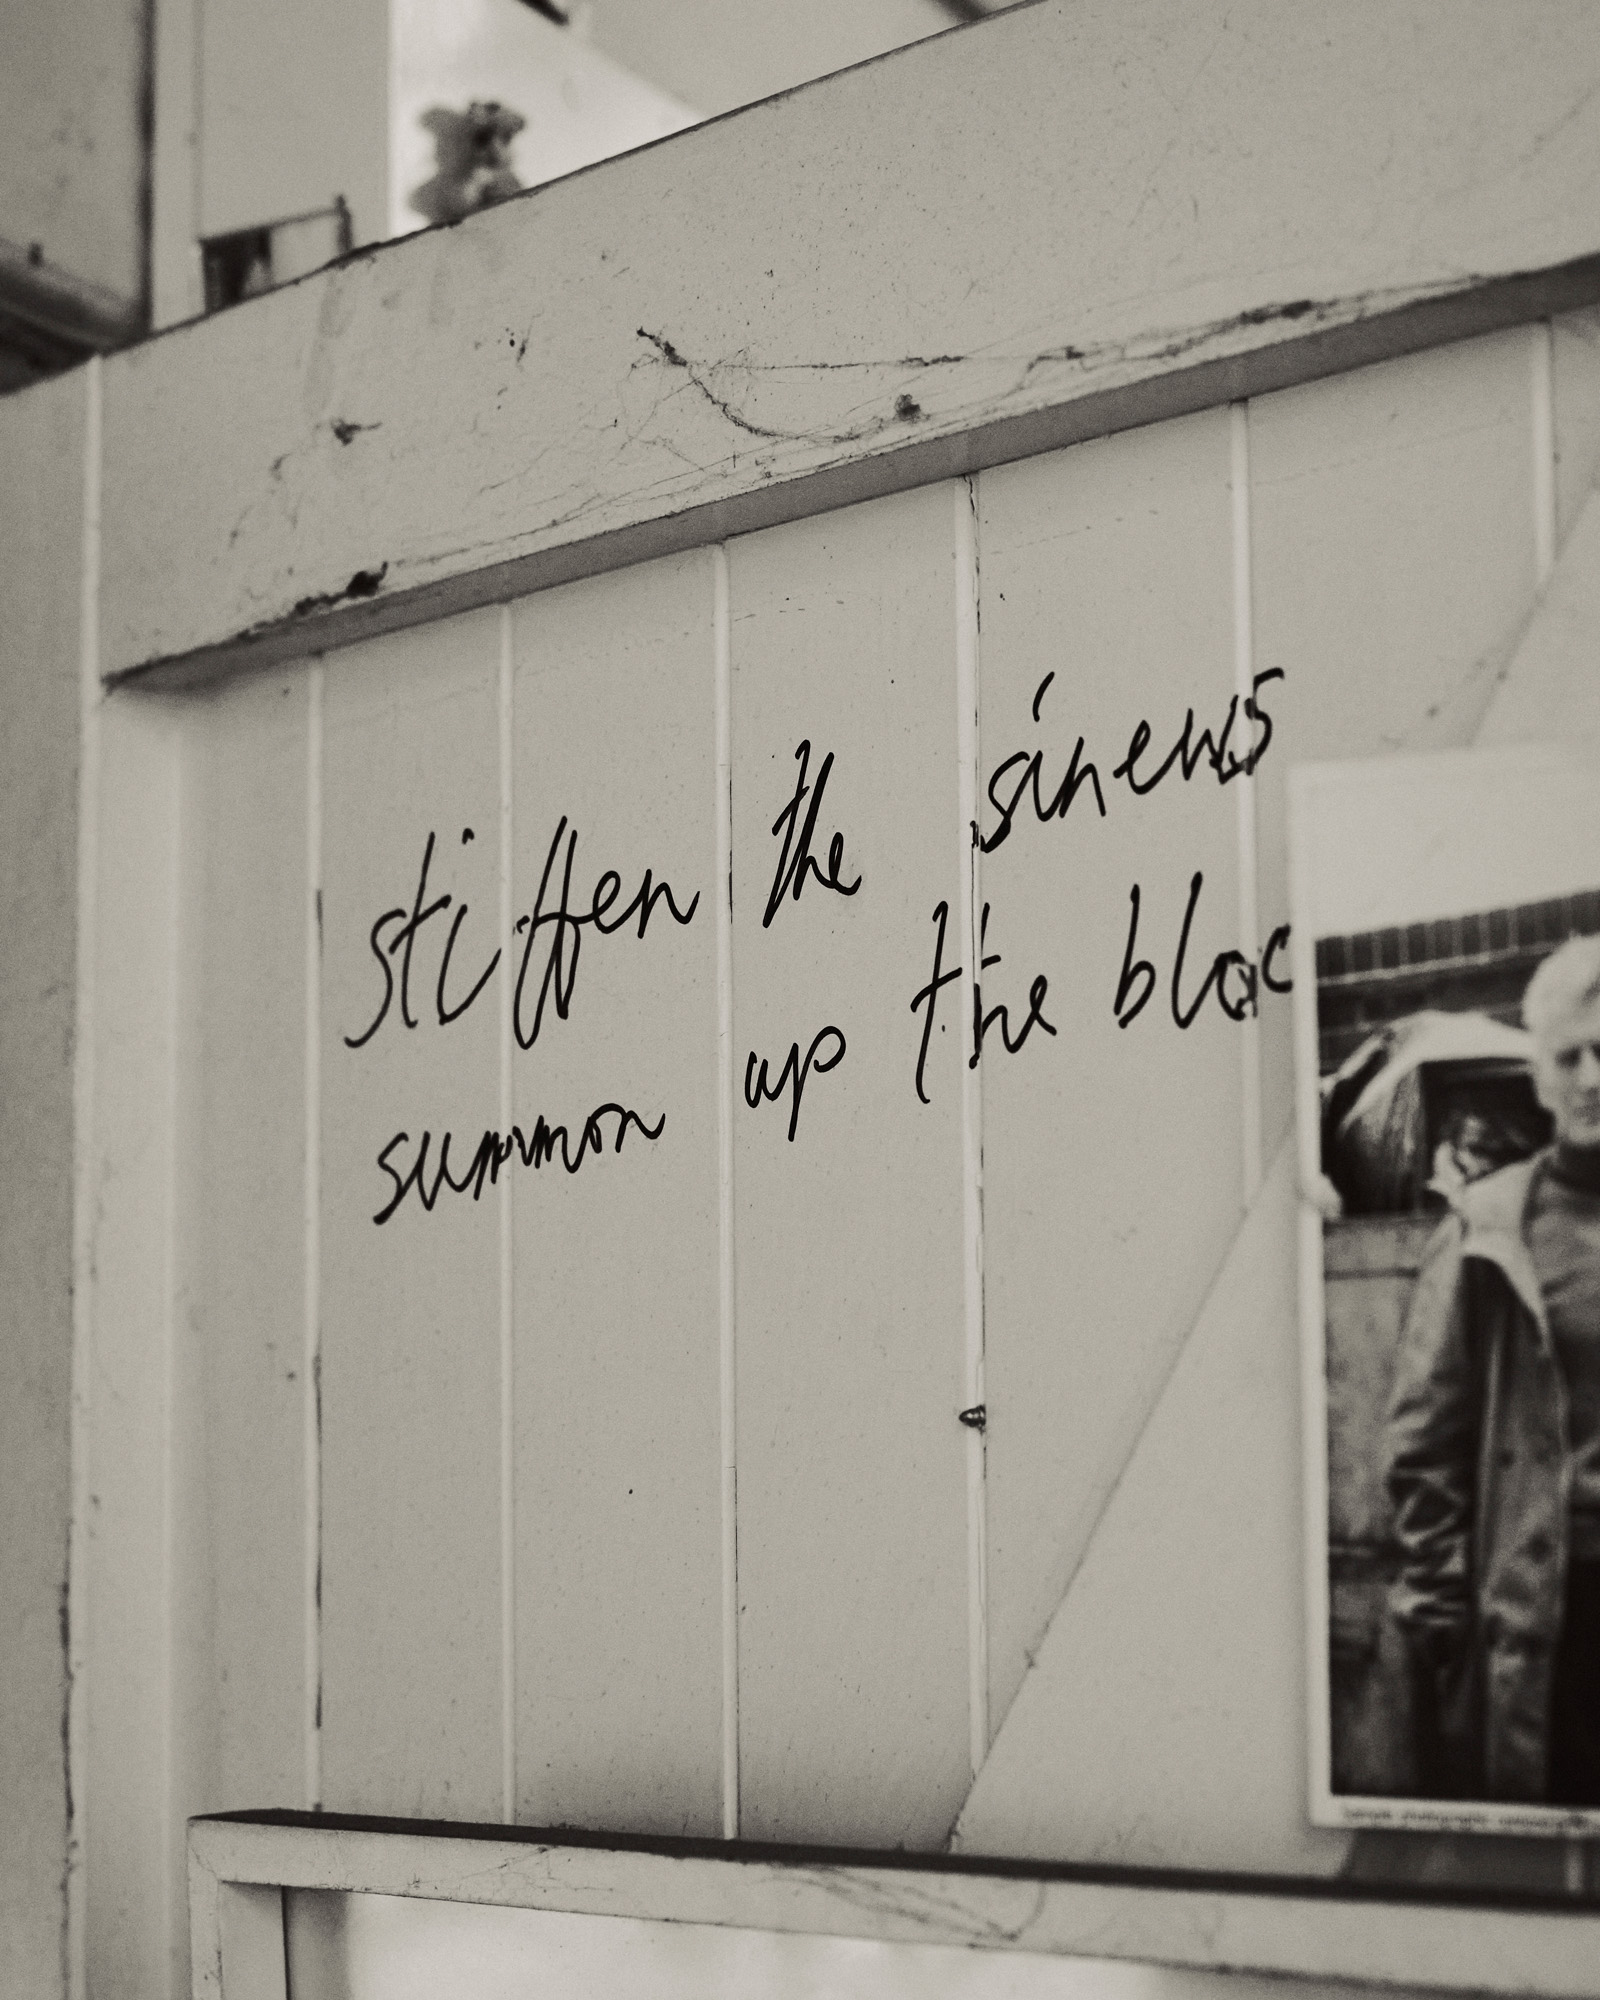 stiffen the sinews
summon up the bloo